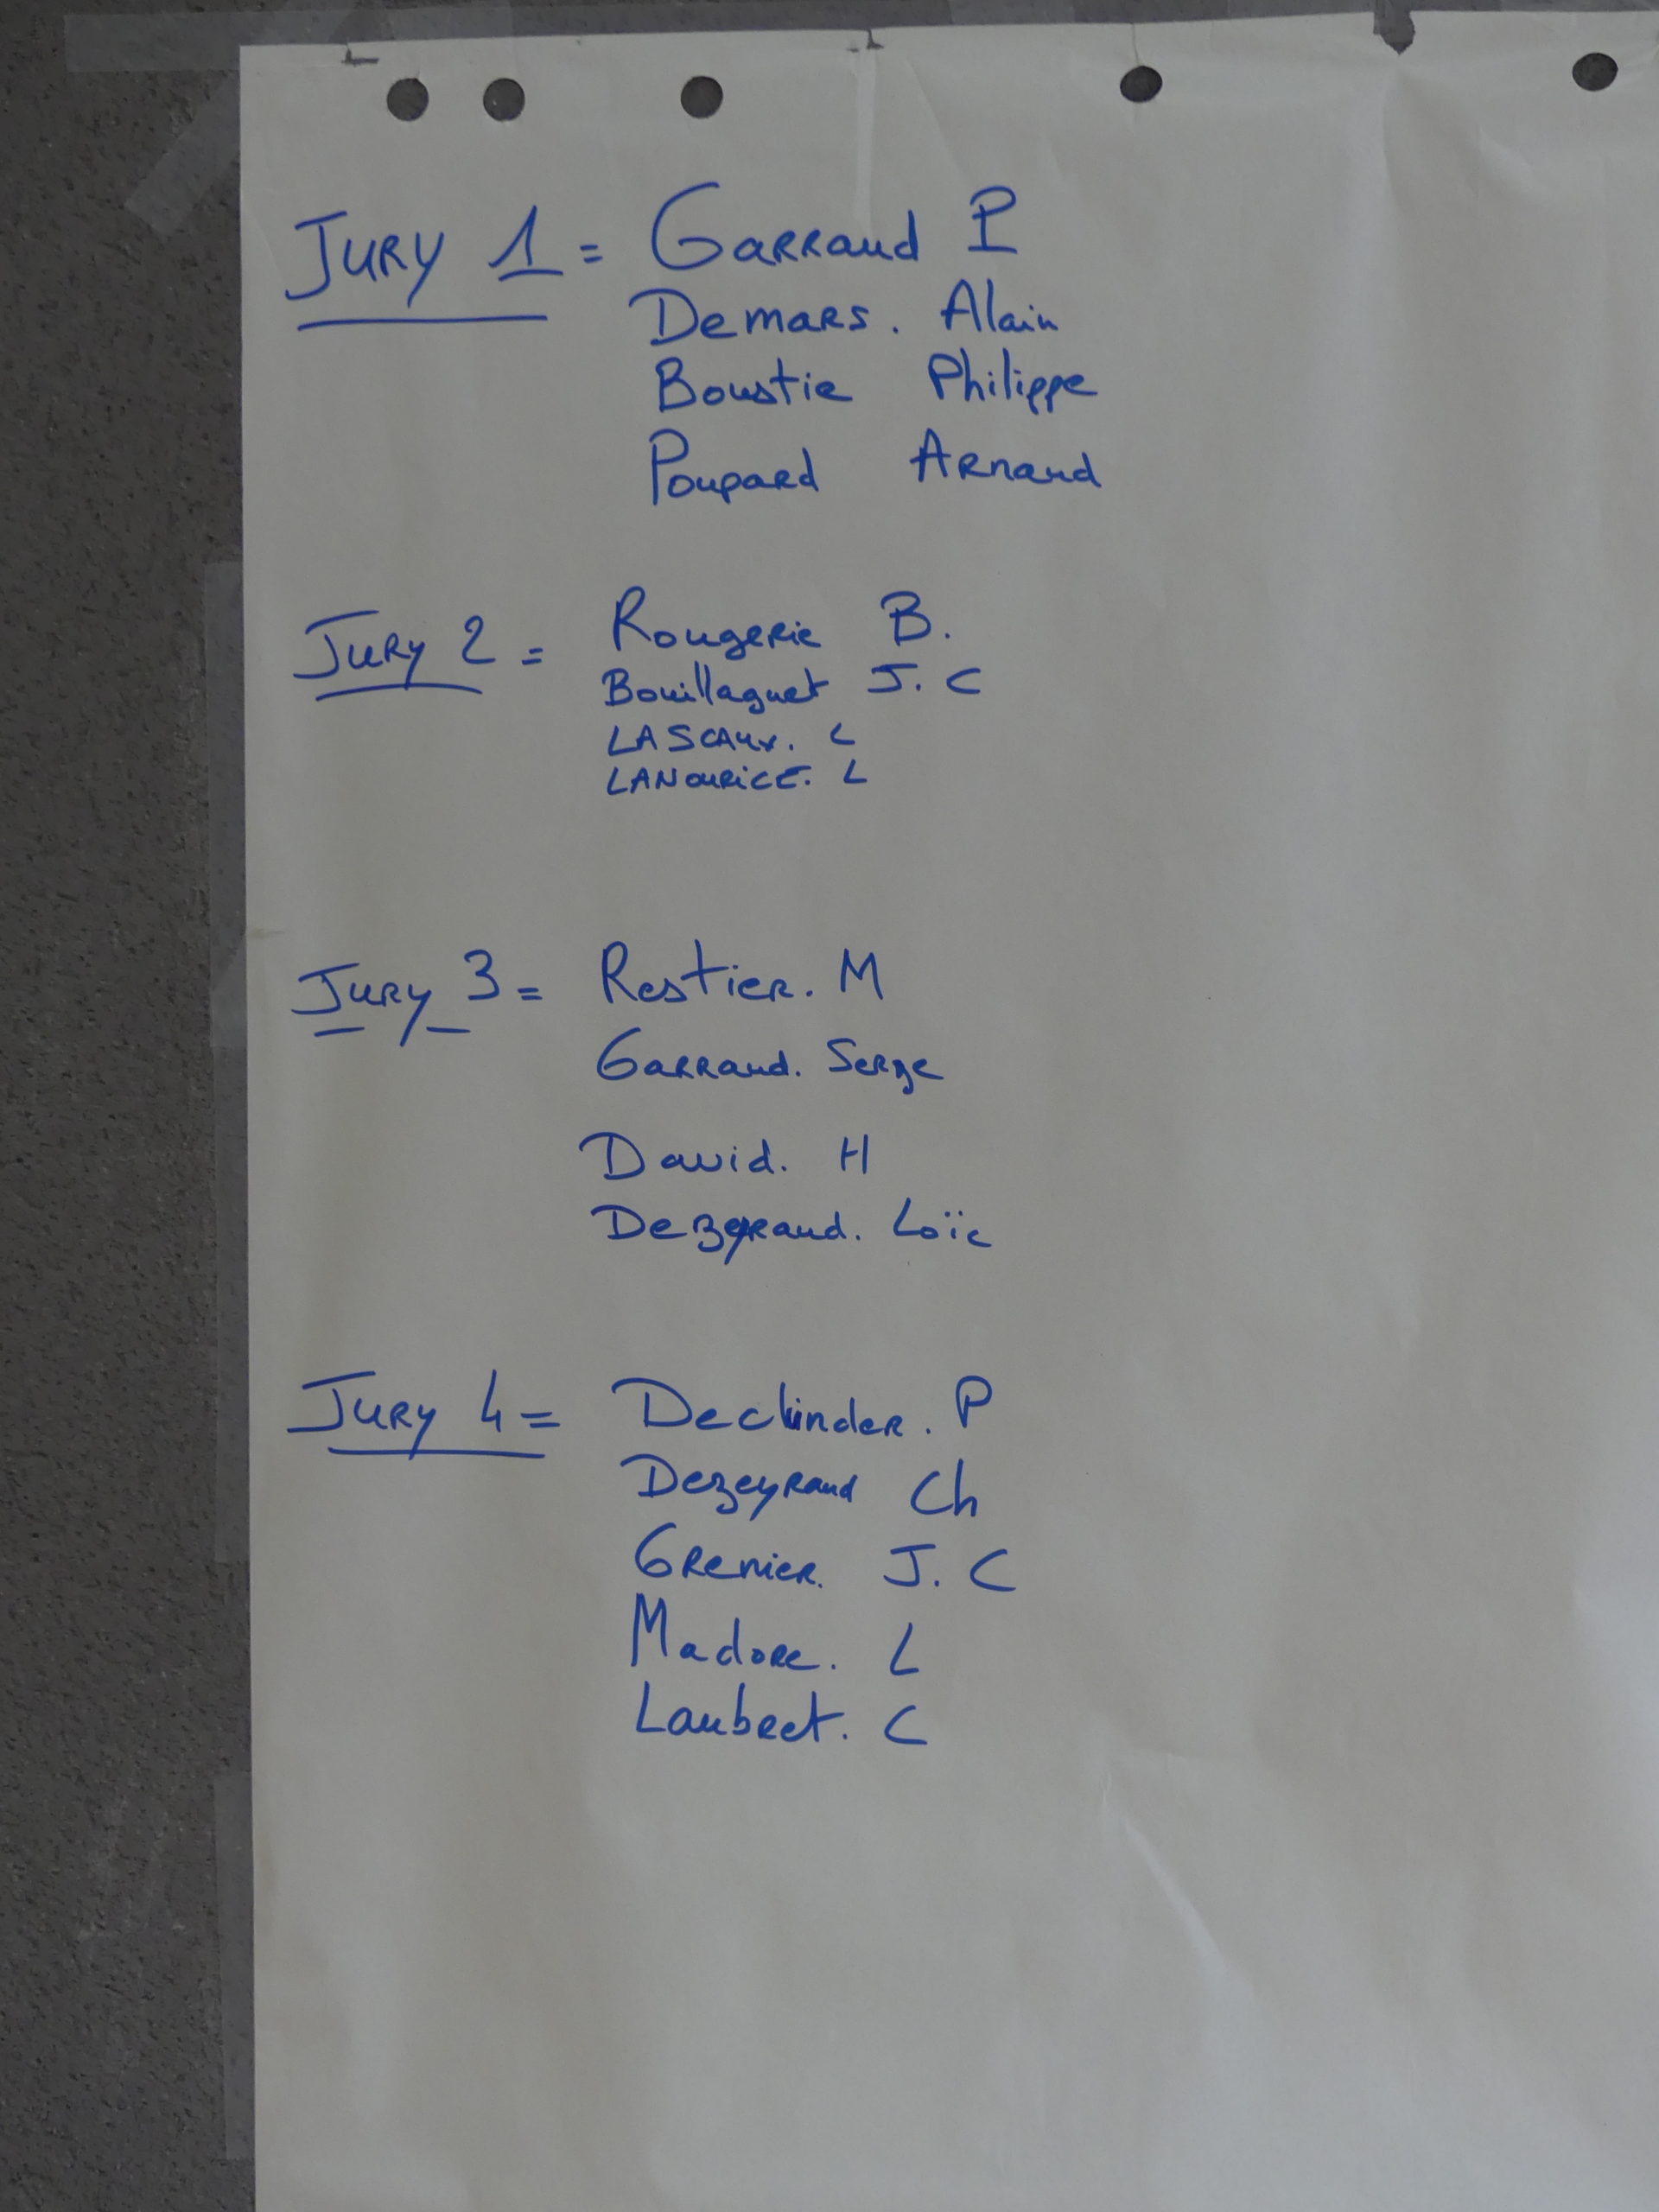 JURY 1 = Garraud P
Demars. Alain
Boustie Philippe
Poupard Arnaud
Jury 2 = Rougerie B.
Bouillaguet J. C
LASCAUX. L
LANOURICE. L
Jury 3 = Restier. M
Garraud. Serge
David. H
Dezeyraud. Loïc
Jury 4 = P
Dezeyraud Ch
Grenier. J. C
Madore. L
Laubert. C